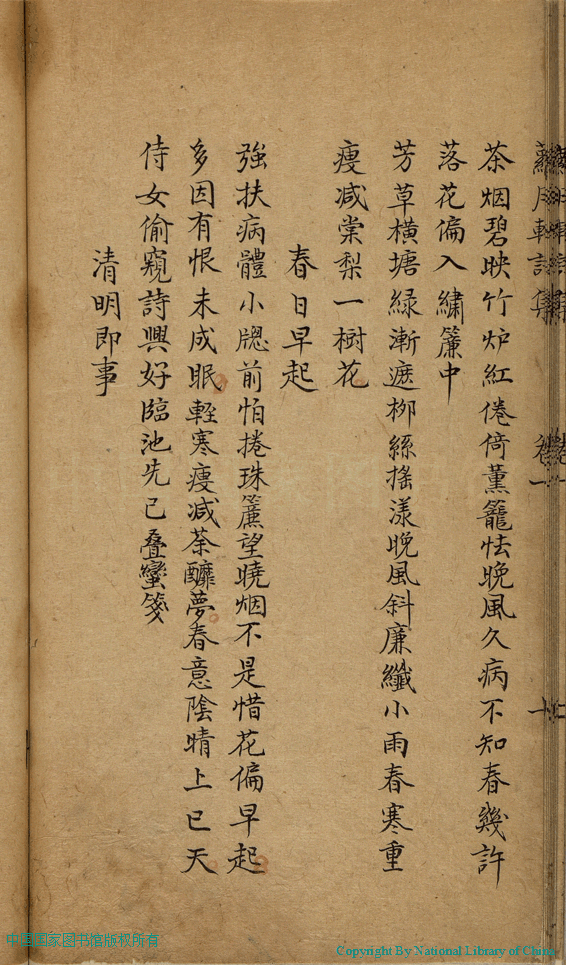 茶烟碧映竹炉紅倦倚薰籠怯晚風久病不知春幾許
落花偏入繡簾中
芳草橫塘綠漸遮柳絲搖漾晚風斜廉纖小雨春寒重
瘦減棠梨一樹花
春日早起
強扶病體小牕前怕捲珠簾望曉烟不是惜花偏早起
多因有恨未成眠輕寒瘦減荼蘼夢春意陰晴上巳天
侍女偷窺詩興好臨池先已疊蠻箋
清明即事
中国国家图书馆版权所有
Copyright By National Library of China